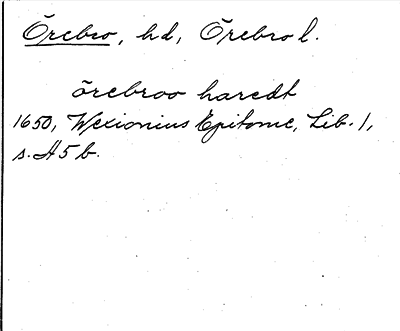 Örebro, hd, Örebro l.
örebroo haredt
1650, Wexionius Epitome, Lib. 1,
s. A 5 b.